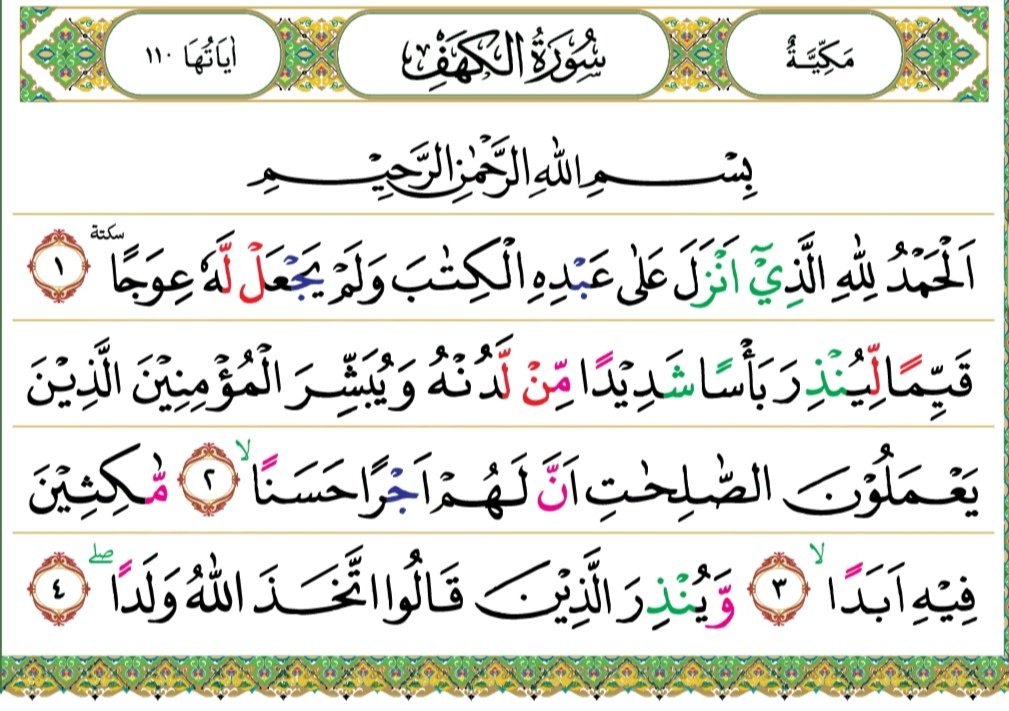 مَكِّيَّةٌ سُوْرَةُ الْكَهْفِ اٰيَاتُهَا ١١٠
بِسْمِ اللهِ الرَّحْمٰنِ الرَّحِيْمِ
اَلْحَمْدُ لِلّٰهِ الَّذِيْٓ اَنْزَلَ عَلٰى عَبْدِهِ الْكِتٰبَ وَلَمْ يَجْعَلْ لَّهٗ عِوَجًا ۜ سكتة ١
قَيِّمًا لِّيُنْذِرَ بَأْسًا شَدِيْدًا مِّنْ لَّدُنْهُ وَيُبَشِّرَ الْمُؤْمِنِيْنَ الَّذِيْنَ
يَعْمَلُوْنَ الصّٰلِحٰتِ اَنَّ لَهُمْ اَجْرًا حَسَنًا ۙ ٢ مّٰكِثِيْنَ
فِيْهِ اَبَدًا ۙ ٣ وَّيُنْذِرَ الَّذِيْنَ قَالُوا اتَّخَذَ اللهُ وَلَدًا ۖ ٤